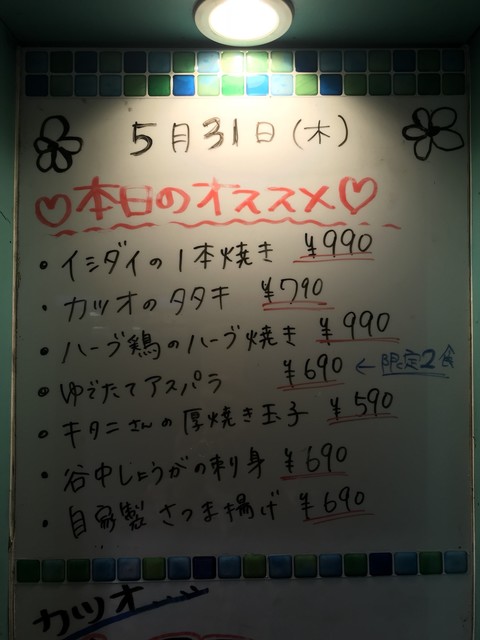 5月31日(木)
♡本日のオススメ♡
・イシダイの1本焼き ¥990
・カツオのタタキ ¥790
・ハーブ鶏のハーブ焼き ¥990
・ゆでたてアスパラ ¥690 ← 限定2食
・キタニさんの厚焼き玉子 ¥590
・谷中しょうがの刺り身 ¥690
・自家製さつま揚げ ¥690
カツオ....